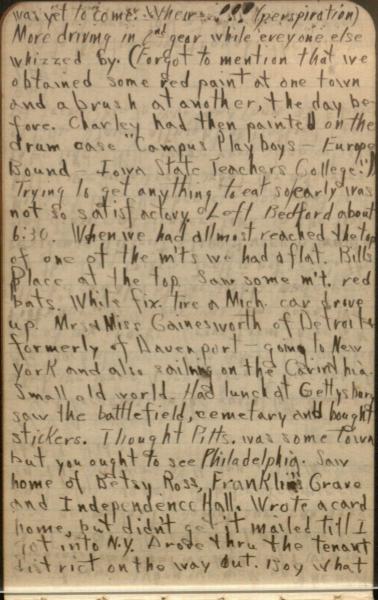 was yet to come. Whew - !!! (perspiration)
More driving in 2nd gear while everyone else
whizzed by. (Forgot to mention that we
obtained some red paint at one town
and a brush at another, the day be-
fore. Charley had then painted on the
drum case "Campus Playboys - Europe
Bound - Iowa State Teachers College.")
Trying to get anything to eat so early was
not so satisfactory. Left Bedford about
6:30. When we had allmost reached the top
of one of the mt's we had a flat. Bills
Place at the top. Saw some m't. red
bats. While fix. tire a Mich. car drove
up. Mrs & Miss Gainesworth of Detroit
formerly of Davenport - going to New
York and also sailing on the Carinthia.
Small old world. Had lunch at Gettysburg
saw the battlefield, cemetary and bought
stickers. Thought Pitts. was some town
but you ought to see Philadelphia. Saw
home of Betsy Ross, Franklin's Grave
and Independence Hall. Wrote a card
home, but didn't get it mailed till I
got into N.Y. Drove thru the tenant
district on the way out. Boy what